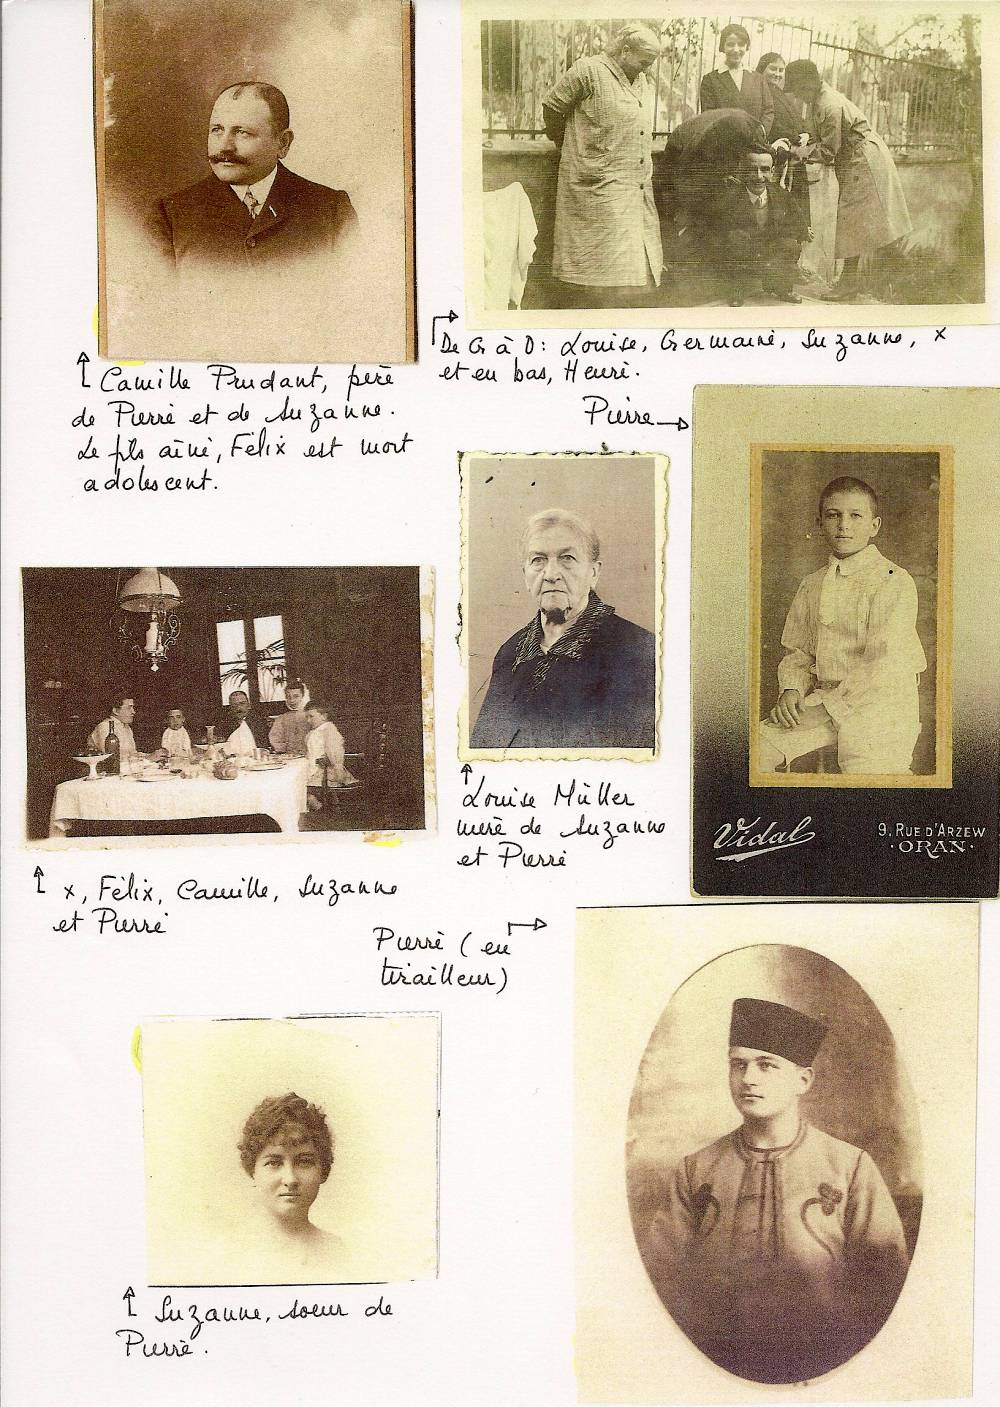 Camille Prudant, père
de Pierre et de Suzanne.
Le fils aîné, Félix est mort
adolescent.
De G à D: Louise, Germaine, Suzanne, x
et en bas, Henri.
Pierre
Louise Müller
mère de Suzanne
et Pierre
Vidal
9. RUE D'ARZEW
·ORAN·
x, Félix, Camille, Suzanne
et Pierre
Pierre (en
tirailleur)
Suzanne, soeur de
Pierre.